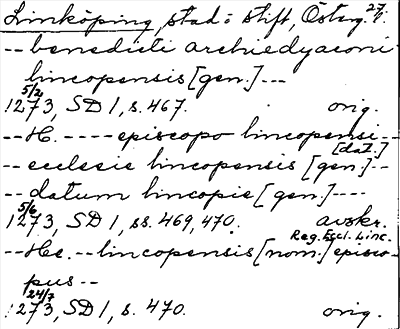 Linköping, stad o stift, Österg. 27.
-- benedicti archidyaconi
lincopensis [gen.] ---
5/2
1273, SD 1, s. 467. orig.
-- H. ---- episcopo lincopensi --
[dat.]
-- ecclesie lincopensis [gen.] --
-- datum lincopie [gen.] ----
5/6
1273, SD 1, ss. 469, 470. avskr.
Reg. Eccl. Linc.
-- He. -- lincopensis [nom.] episco-
pus --
24/7
1273, SD 1, s. 470. orig.